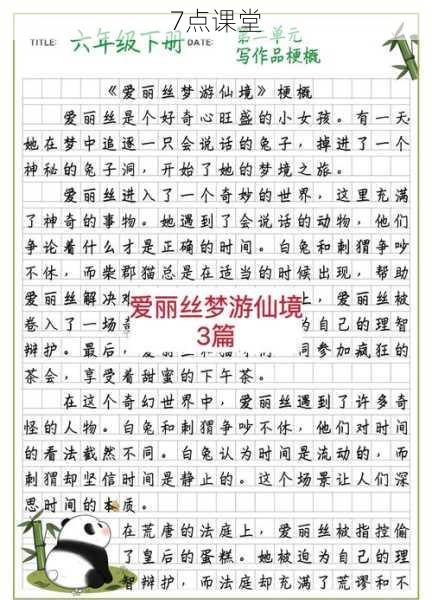 7点课堂
TITLE: 六年级下册 DATE: 第二单元
写作品梗概
《爱丽丝梦游仙境》梗概
爱丽丝是个好奇心旺盛的小女孩。有一天
她在梦中追逐一只会说话的兔子,掉进了一个
神秘的兔子洞,开始了她的梦境之旅。
爱丽丝进入了一个奇妙的世界,这里充满
了神奇的事物。她遇到了会说话的动物,他们
争论着什么才是正确的时间。白兔和刺猬争吵
不休,而柴郡猫总是在适当的时候出现,帮助
爱丽丝解决难 上,爱丽丝被
卷入了一场 为自己的理智
辩护。最后, 同参加疯狂的
茶会,享受着甜蜜的下午茶。
爱丽丝梦游仙境
3篇
在这个奇幻世界中,爱丽丝遇到了许多奇
怪的人物。白兔和刺猬争吵不休,他们对时间
的看法截然不同。白兔认为时间是流动的,而
刺猬却坚信时间是静止的。这个场景让人们深
思时间的本质。
在荒唐的法庭上,爱丽丝被指控偷
了皇后的蛋糕。她被迫为自己的理
智辩护,而法庭却充满了荒谬和不